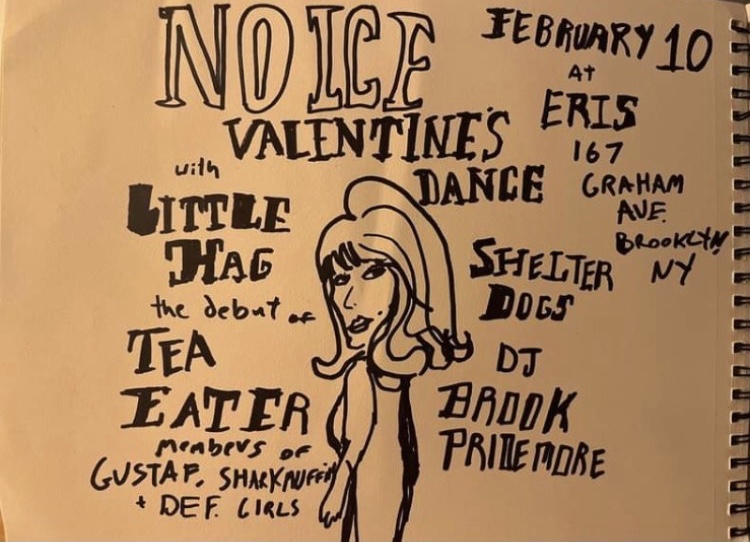 NO ICE
VALENTINE'S
DANCE
FEBRUARY 10
AT
ERIS
167
GRAHAM
AVE.
BROOKLYN
NY
with
LITTLE
HAG
the debut of
TEA
EATER
members of
GUSTAF, SHARKMUFFIN
+ DEF. GIRLS
SHELTER
DOGS
DJ
BROOK
PRIDEMORE